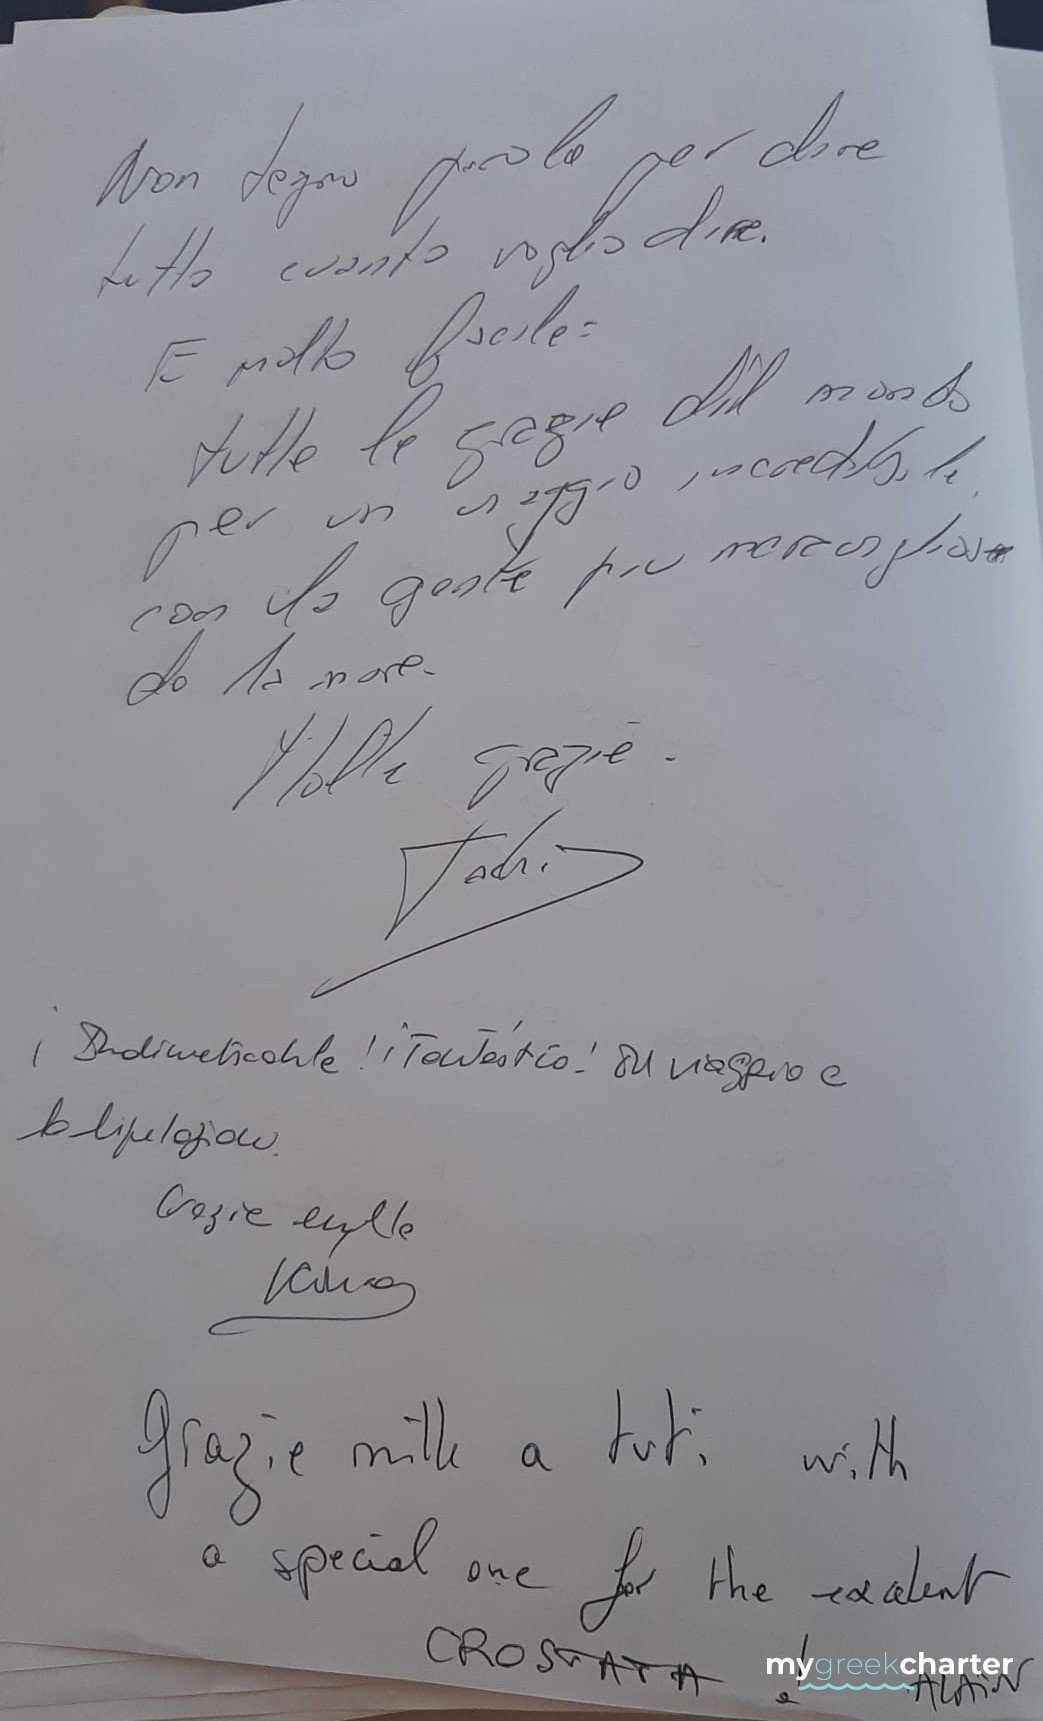 Non tegno parola per dire
tutto cuanto voglio dire.
E molto facile:
tutte le grazie dil mondo
per un viaggio incredibile,
con la gente piu
do la mare.
Molte grazie.
¡ Indimeticabile ! ¡ Fantástico! Un viaggio e
Grazie mille
Grazie mille a tuti with
a special one for the exelent
CROSTATA !
ALAIN
mygreekcharter